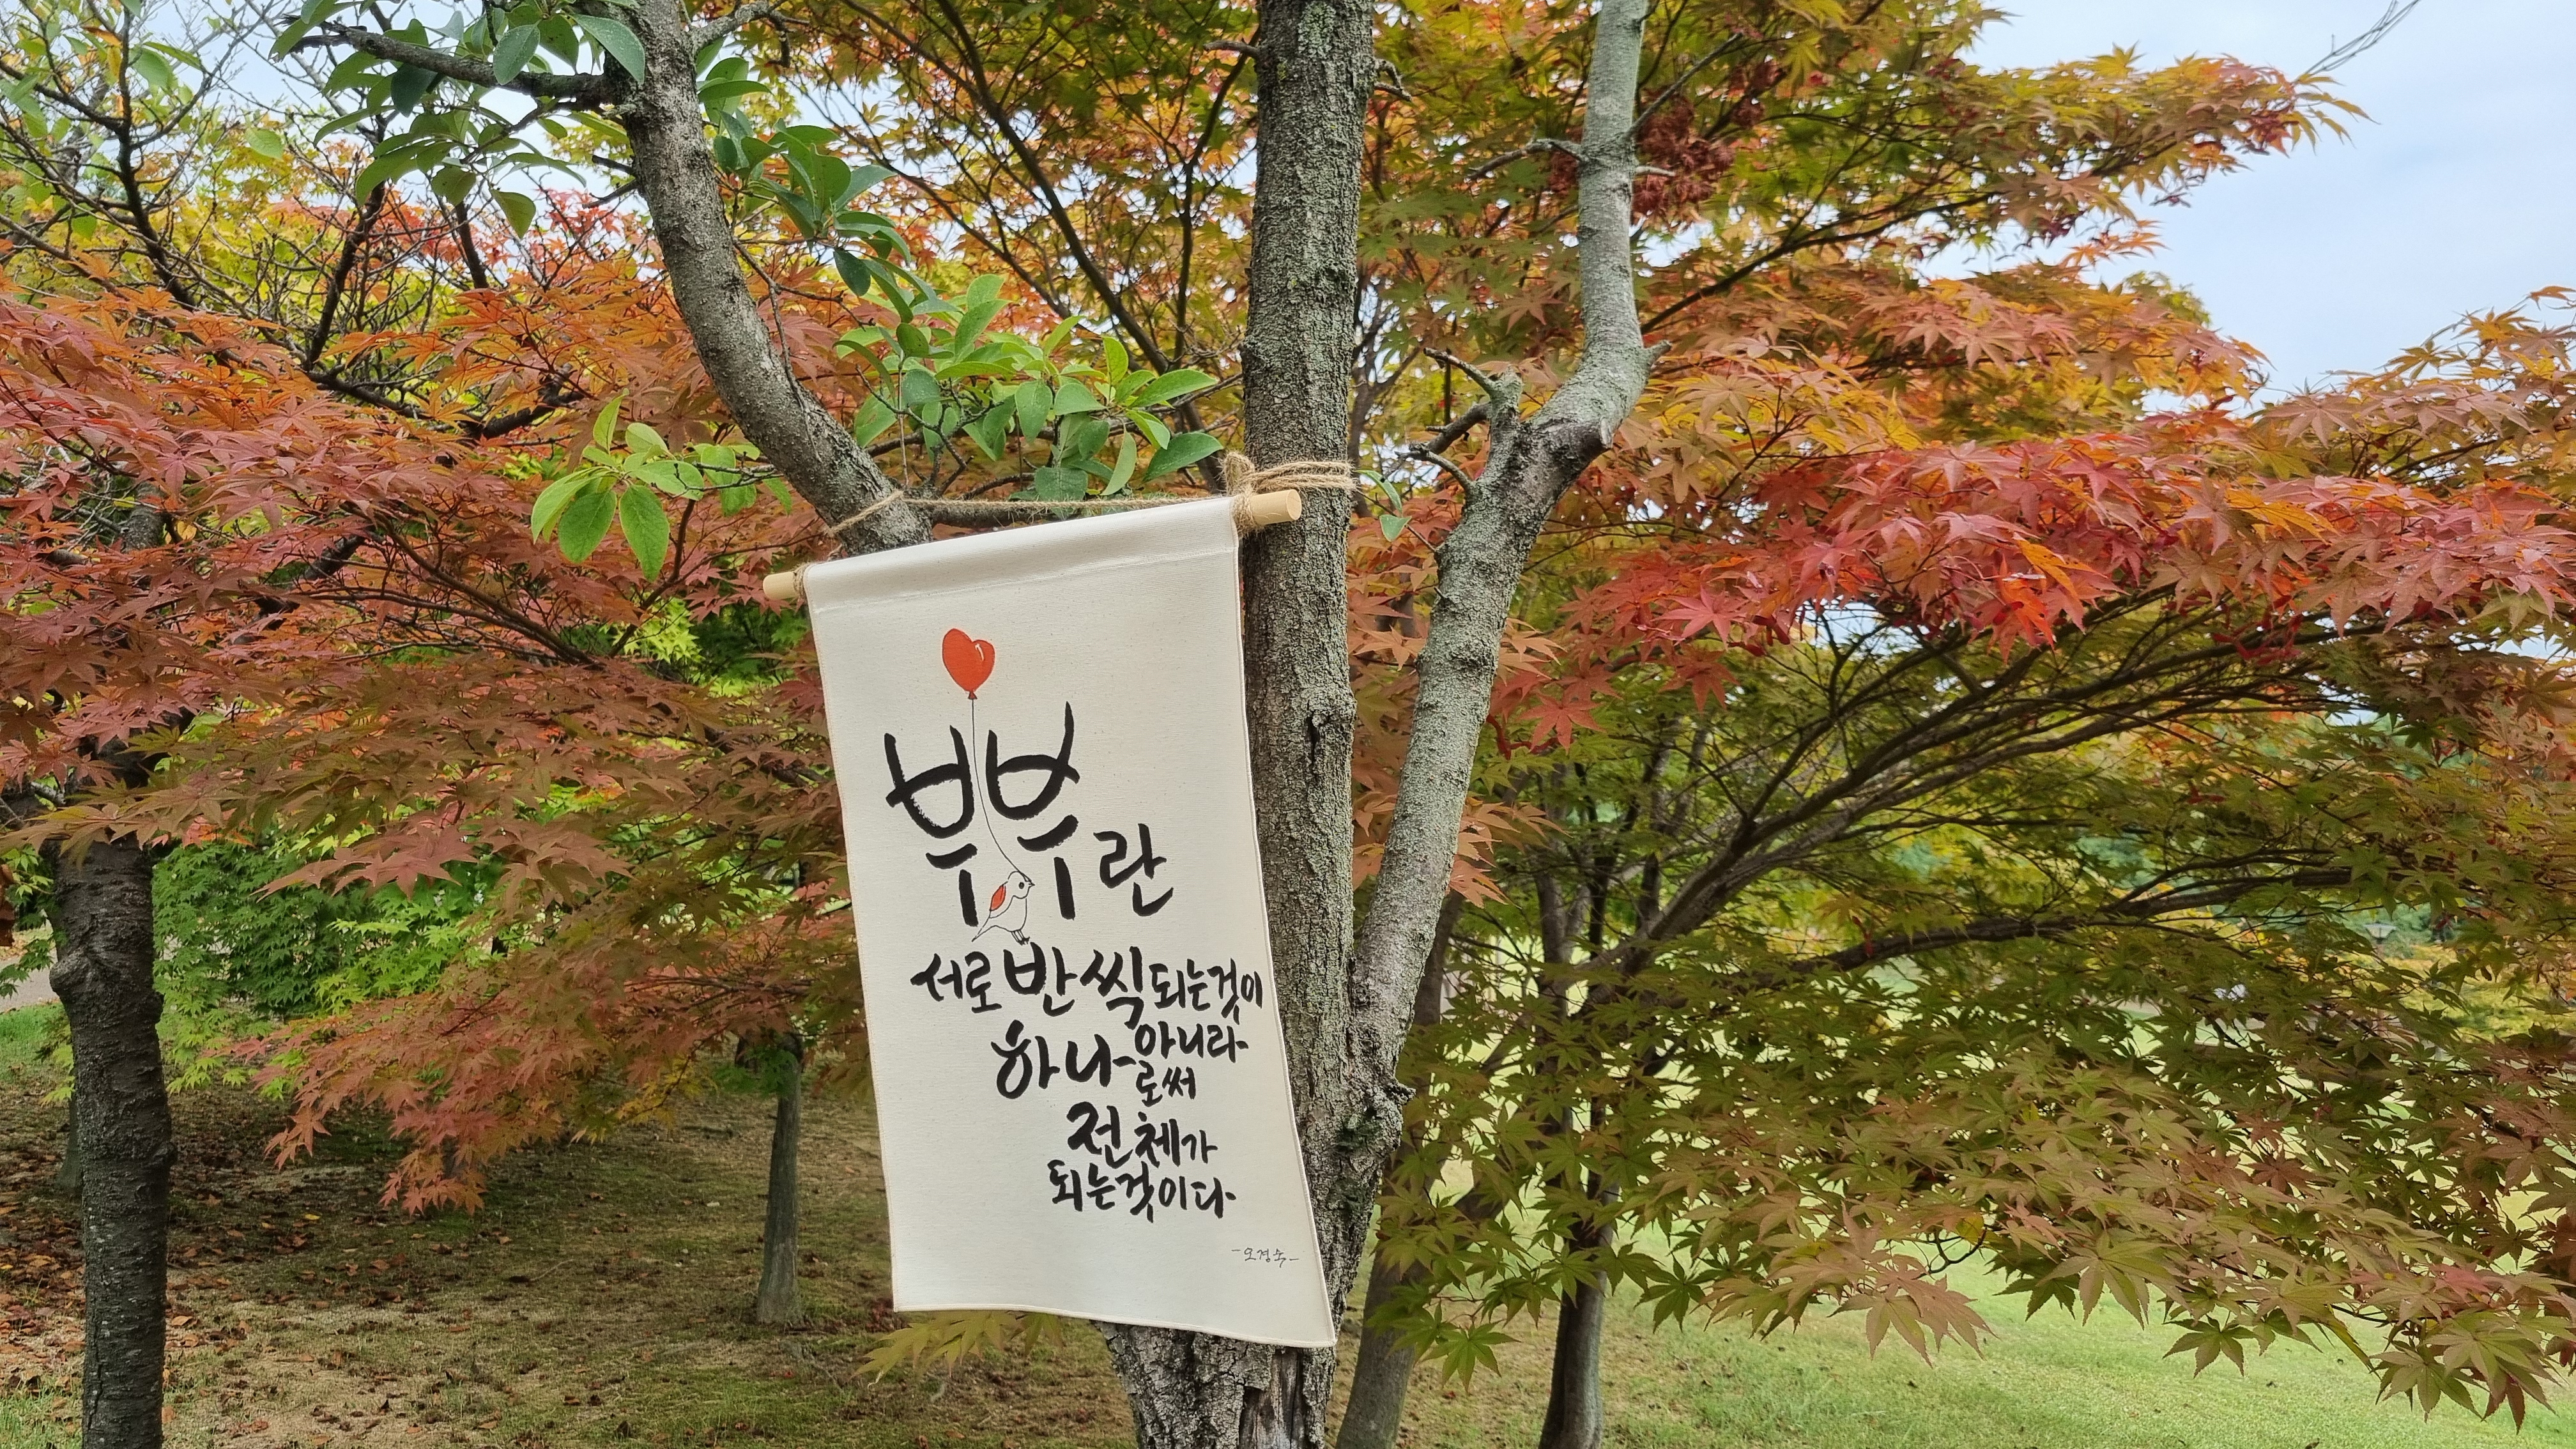 부부란
서로 반씩 되는것이
아니라
하나로써
전체가
되는것이다
-오경숙-